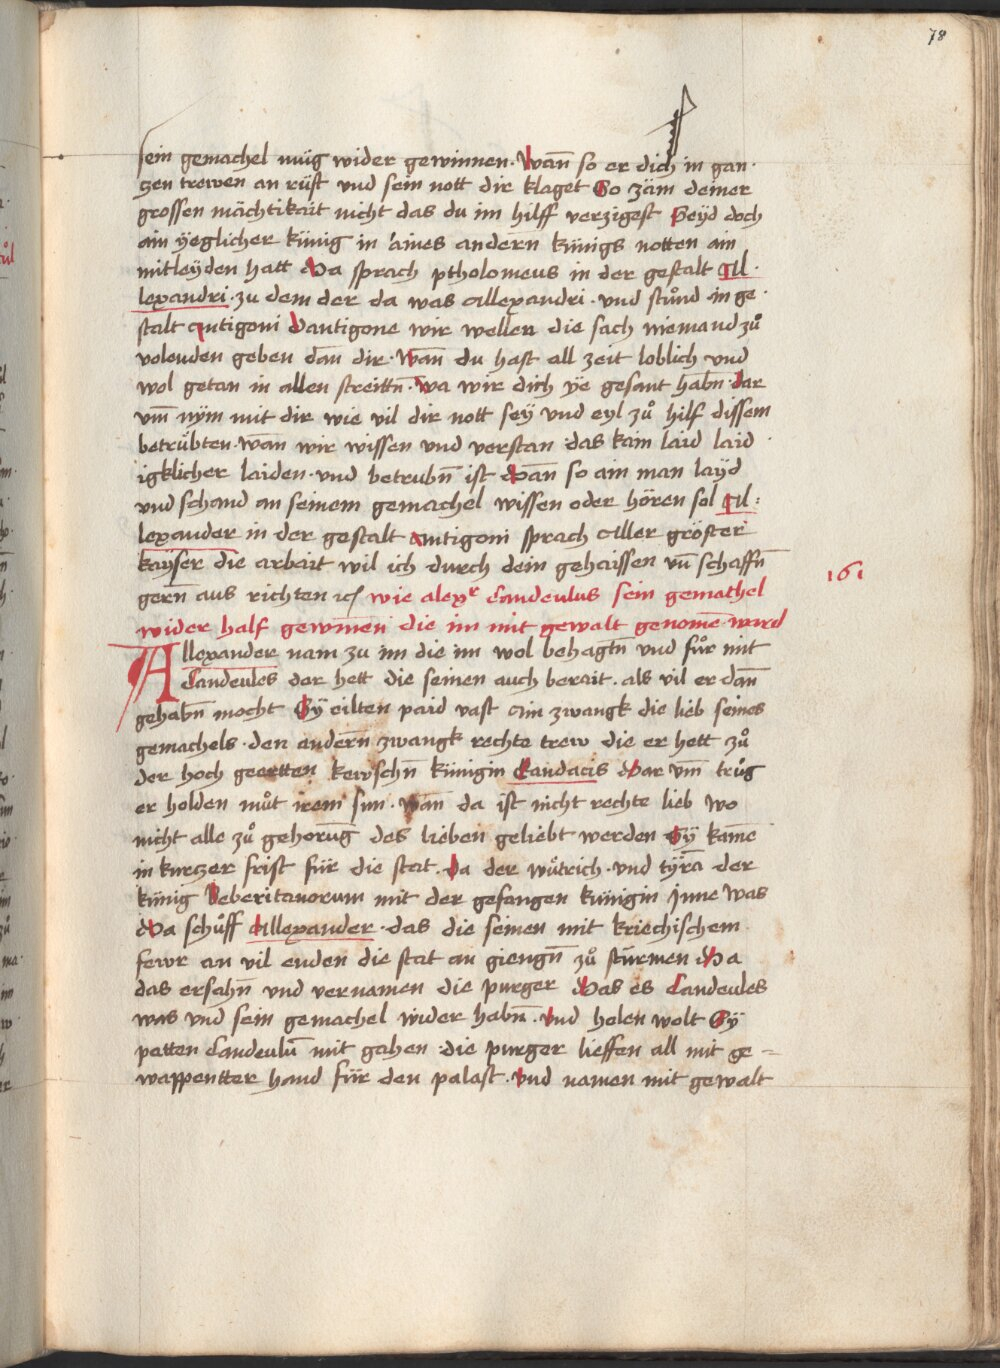 78
sein gemachel müg wider gewinnen · Wan̄ so er dich in gan·
czen trewen an rüst vnd sein nott dir klaget So zäm deiner
grossen mächtikait nicht das du im hilff verzigest Seÿd doch
ain ÿeglicher künig in aines andern künigs notten ain
mitleÿden hatt Da sprach ptholomeus in der gestalt All·
lexandri · zu dem der da was allexandri · vnd stuͦnd in ge·
stalt antigoni Dantigone wir wellen die sach niemand zuͦ
volenden geben dan̄ dir · Wan̄ du hast all zeit loblich vnd
wol getan in allen streittn̄ · wa wir dich ÿe gesant habn̄ · dar
vm̄ nÿm mit dir wie vil dir nott seÿ vnd eyl zuͦ hilf dissem
betrübten · wan wir wissen vnd verstan · das kain laid laid ·
igklicher laiden · vnd betrubn̄ ist Dan̄ so ain man laÿd
vnd schand an seinem gemachel wissen oder hören sol All:
lexander in der gestalt antigoni sprach aller gröster
kayser die arbait wil ich durch dein gehaissen vn̄ schaffn̄
gern̄ aus richten ꝛc wie alexʳ Candeulus sein gemachel
161
wider half gewinnen die im mit gewalt genome͞ ward
Allexander nam zu im die im wol behagtn̄ vnd fuͦr mit
Candeules der hett die seinen auch berait · als vil er dan̄
gehabn̄ mocht Sÿ eilten paid vast ain zwangk die lieb seines
gemachels · den andern̄ zwangk rechte trew die er hett zuͦ
der hoch geertten kewschn̄ künigin Candacis Dar vm̄ truͦg
er holden muͦt irem sun · wan̄ da ist nicht rechte lieb wo
nicht alle zuͦ gehoruḡ des lieben geliebt werden Sÿ kame͞
in kurczer frist für die stat · Da der wuͦtrich · vnd tÿra͞ der
künig Beberitanorum mit der gefangen künigin Jnne was
Da schuͦff Allexander · das die seinen mit kriechischem
fewr an vil enden die stat an giengn̄ zuͦ stürmen Da
das ersahn̄ vnd vernamen die purger Das es Candeules
was vnd sein gemachel wider habn̄ · vnd holen wolt Sÿ
patten Candeulu͞ mit gahen · die purger lieffen all mit ge =
wappentter hand für den palast · vnd namen mit gewalt